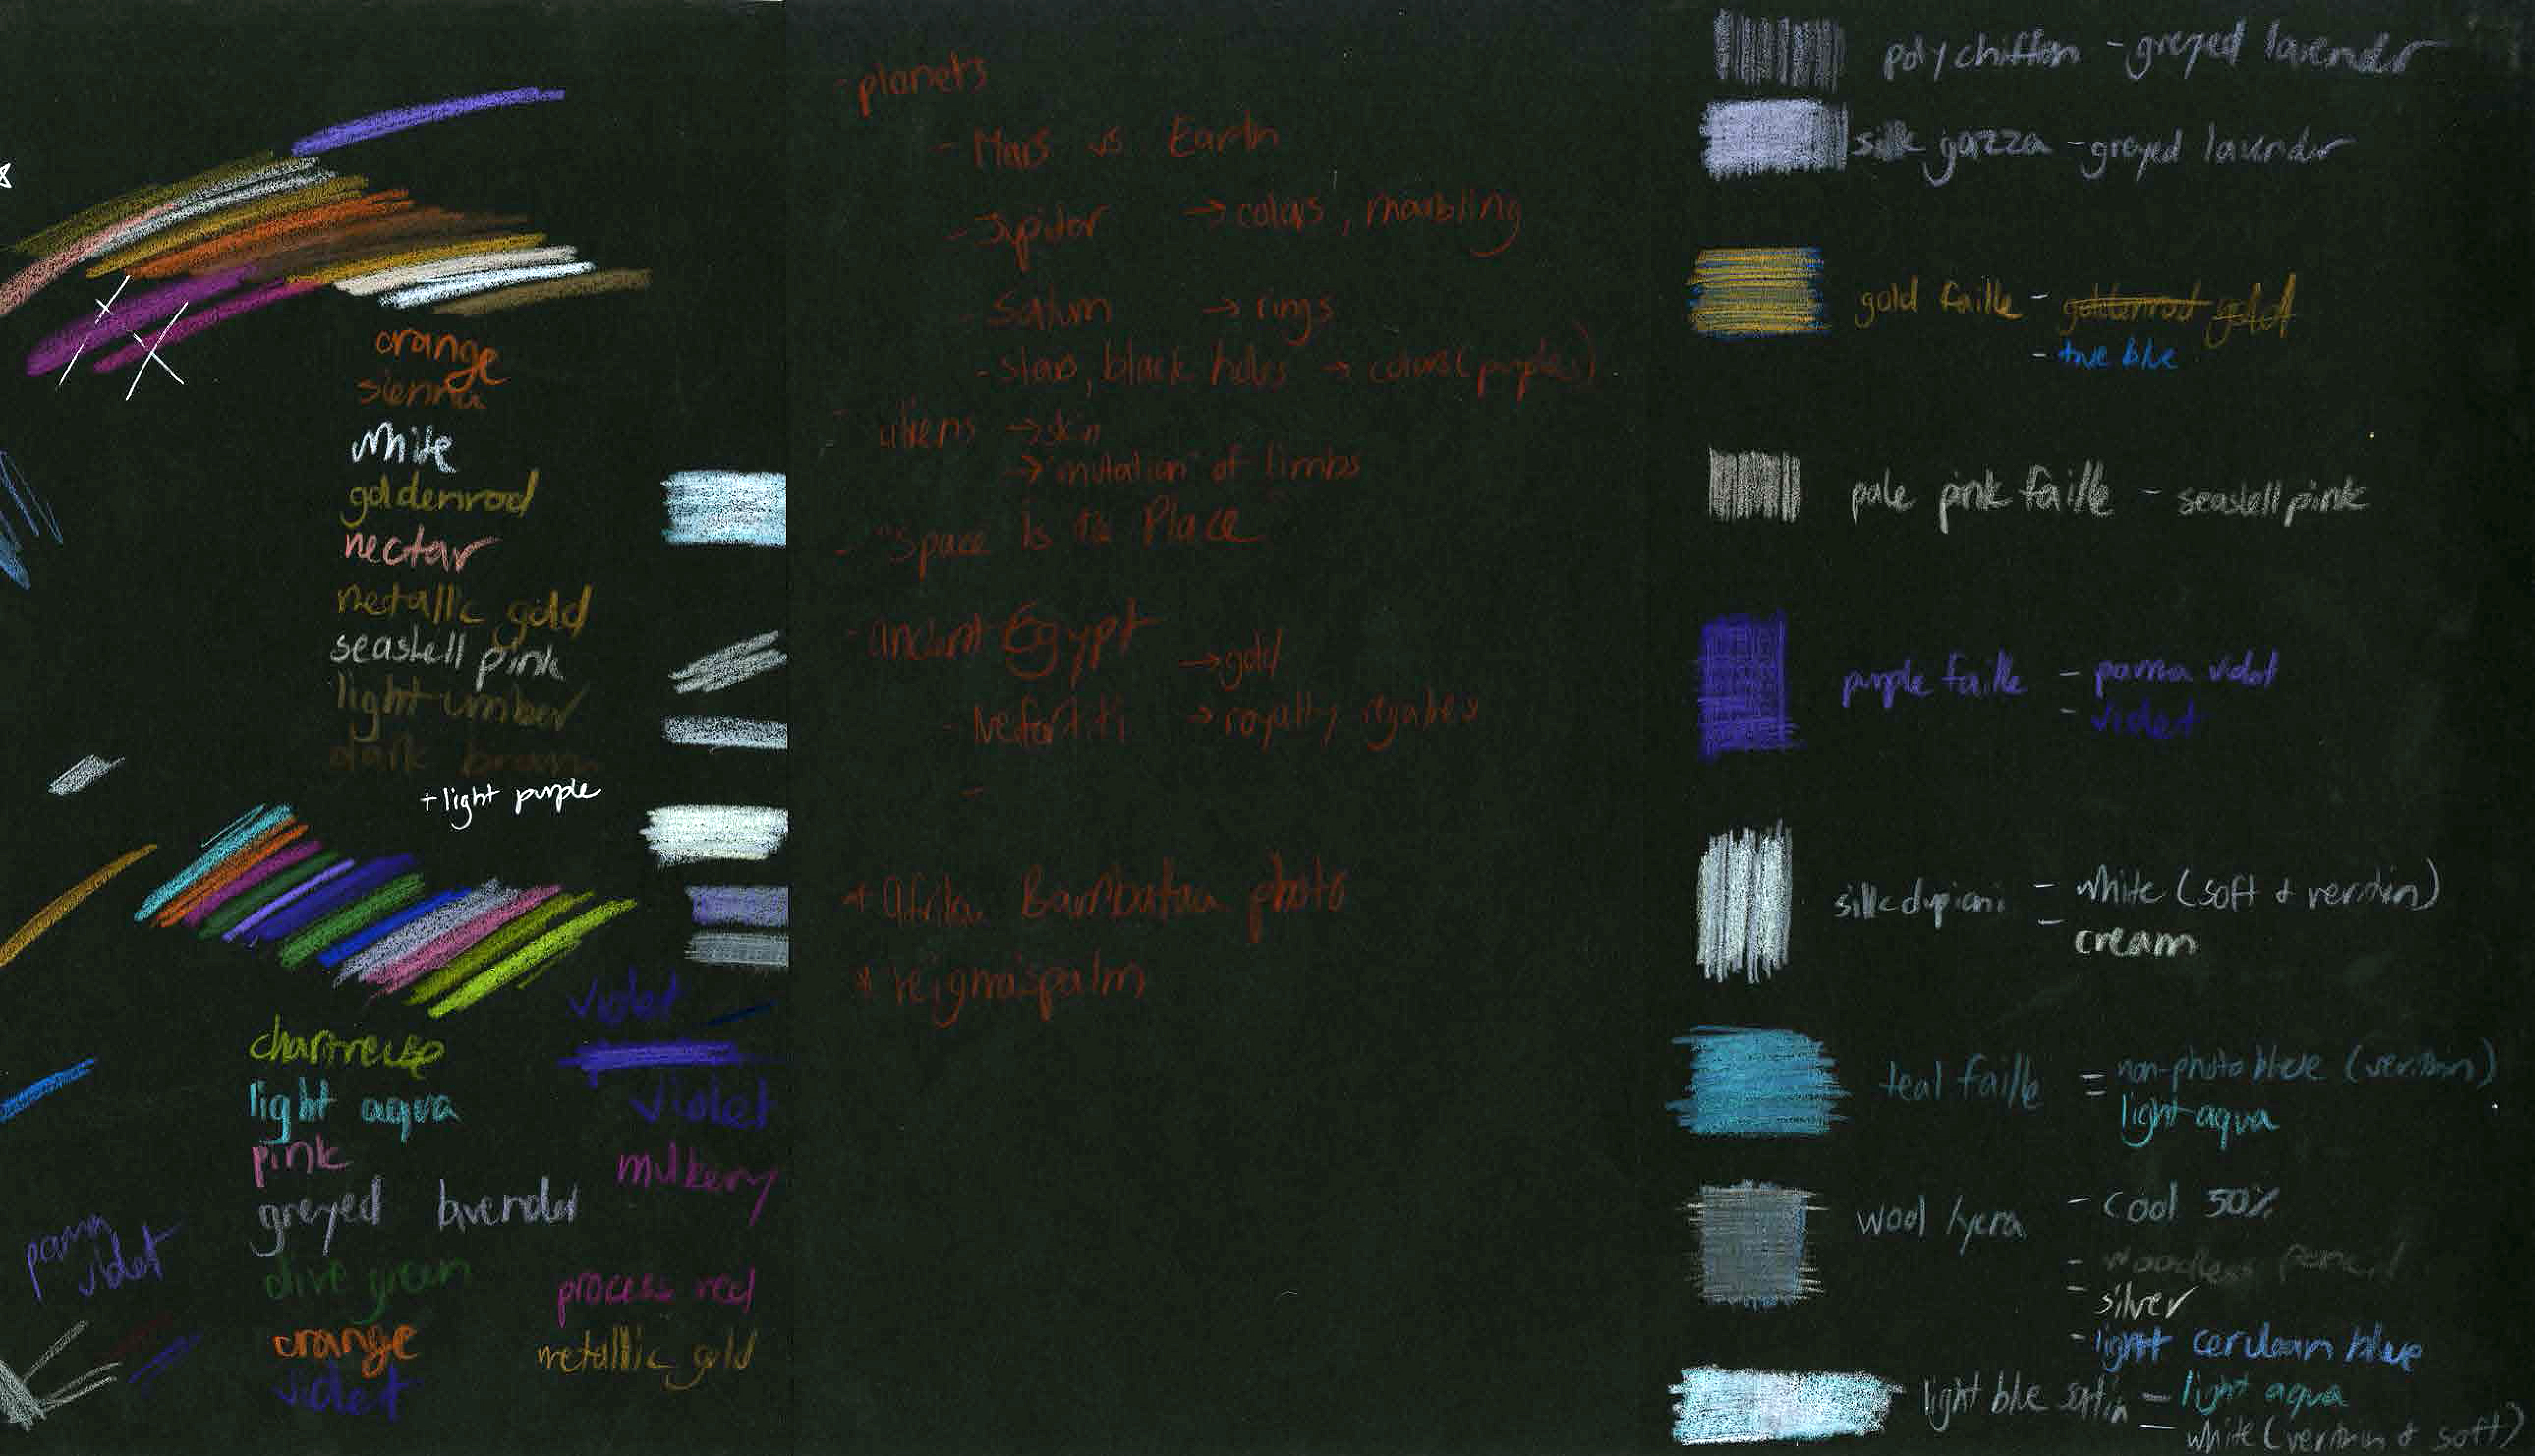 orange
sienna
white
goldenrod
nectar
metallic gold
seashell pink
light umber
dark brown
+ light purple
violet
chartreuse
light aqua
violet
pink
mulberry
greyed lavender
parma violet
olive green
process red
orange
metallic gold
violet
- planets
- Mars vs Earth
- Jupiter → colors, marbling
- Saturn → rings
- stars, black holes → colors (purple)
- aliens → skin
→ "mutation" of limbs
- "Space Is the Place"
- ancient Egypt → gold
- Nefertiti → royalty
-
* Afrika Bambataa photo
* reignaispalm
poly chiffon - greyed lavender
silk gazza - greyed lavender
gold faille - goldenrod gold
- true blue
pale pink faille - seashell pink
purple faille - parma violet
- violet
silk dupioni - white (soft + verithin)
- cream
teal faille - non-photo blue (verithin)
- light aqua
wool lycra - cool 50%
- woodless pencil
- silver
- light cerulean blue
light blue satin - light aqua
- white (verithin + soft)